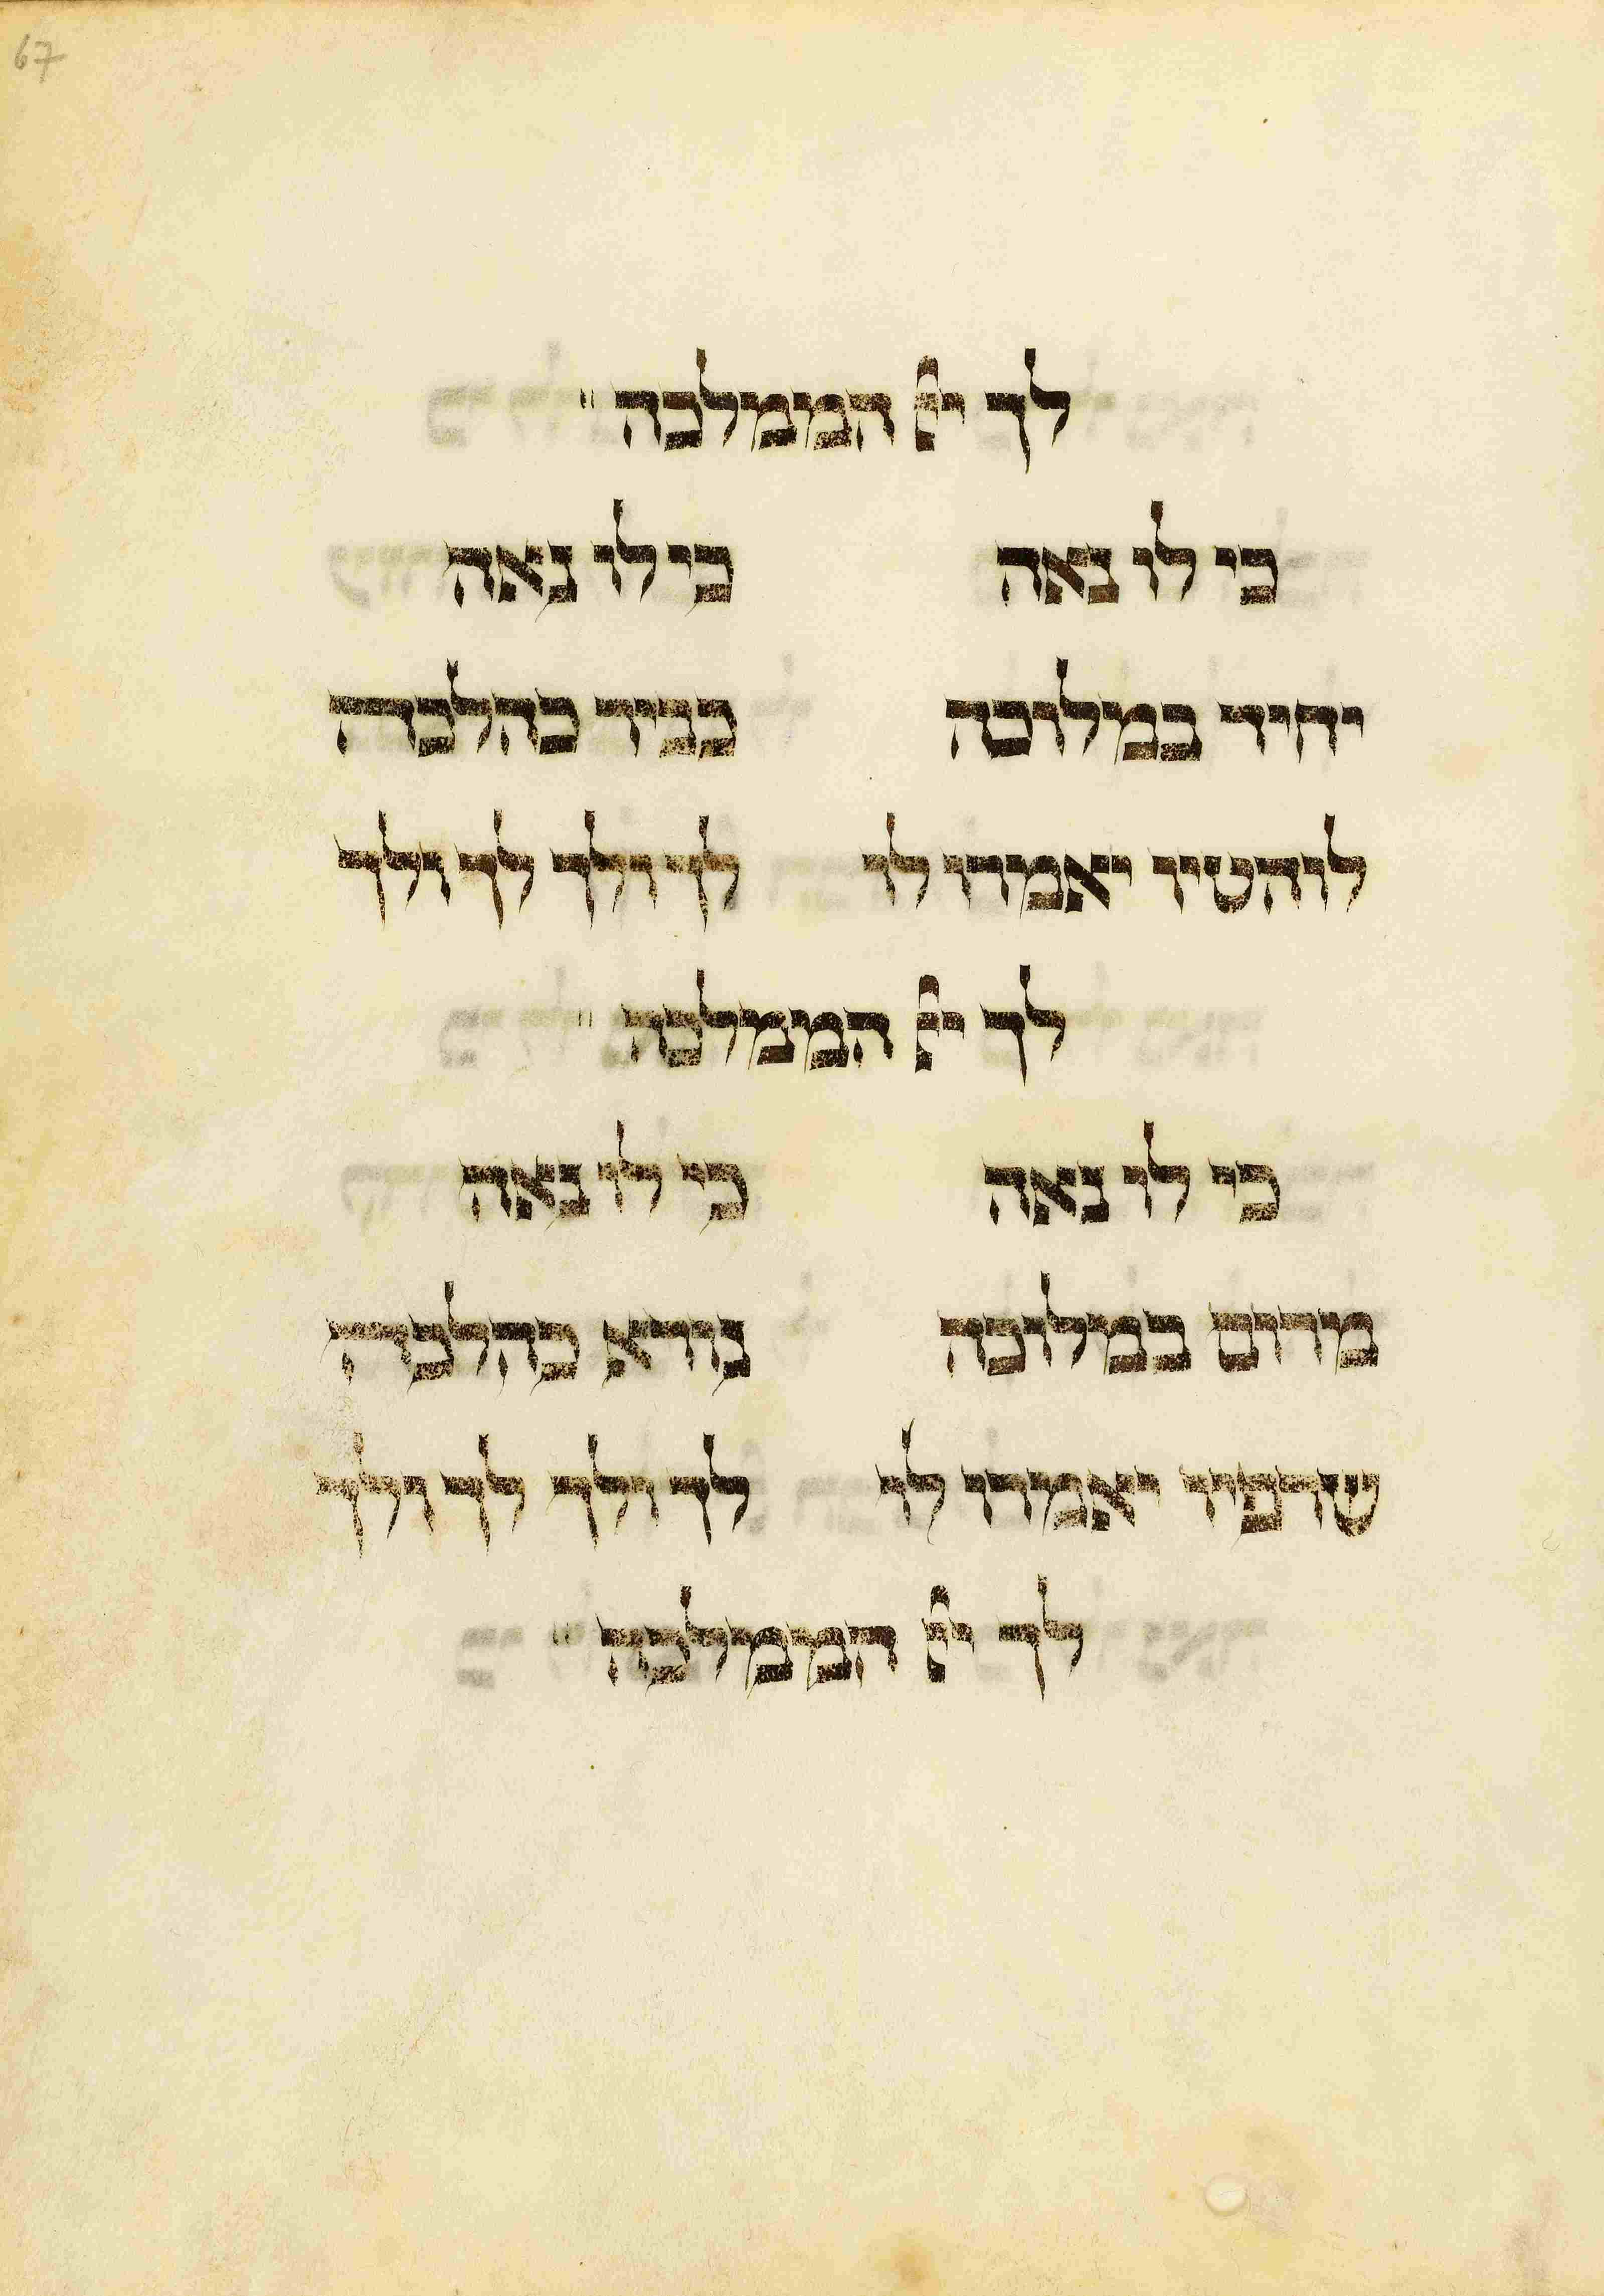 67
לך יי הממלכה
כי לו נאה כי לו נאה
יחיד במלוכה כביר כהלכה
לוהטיו יאמרו לו לך ולך לך ולך
לך יי הממלכה
כי לו נאה כי לו נאה
מרום במלוכה נורא כהלכה
שרפיו יאמרו לו לך ולך לך ולך
לך יי הממלכה